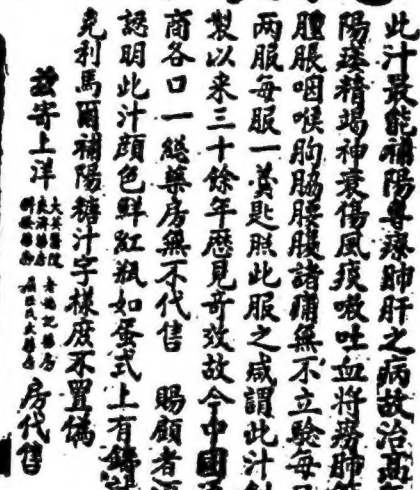 此汁最能補陽專療肺肝之病故治高
陽痿精竭神衰傷風痰嗽吐血將癆肺
腫脹咽喉胸脇腰腹諸痛無不立驗每
兩服每服一羹匙照此服之咸謂此汁
製以来三十餘年歷見奇效故今中國
商各口一総藥房無不代售 賜顧者
認明此汁顔色鮮紅瓶如蛋式上有鑄
克利馬爾補陽糖汁字樣庶不買僞
茲寄上洋
大英醫院 老德記藥房
屈臣氏大藥房
房代售